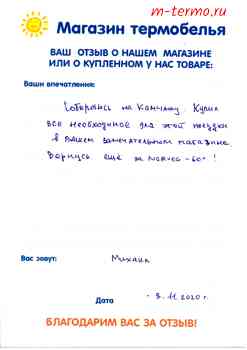 m-termo.ru
Магазин термобелья
ВАШ ОТЗЫВ О НАШЕМ МАГАЗИНЕ
ИЛИ О КУПЛЕННОМ У НАС ТОВАРЕ:
Ваши впечатления:
Собираюсь на Камчатку. Купил
все необходимое для этой поездки
в вашем замечательном магазине
Вернусь еще за
-60-!
Вас зовут:
Михаил
Дата
3.11.2020 г.
БЛАГОДАРИМ ВАС ЗА ОТЗЫВ!